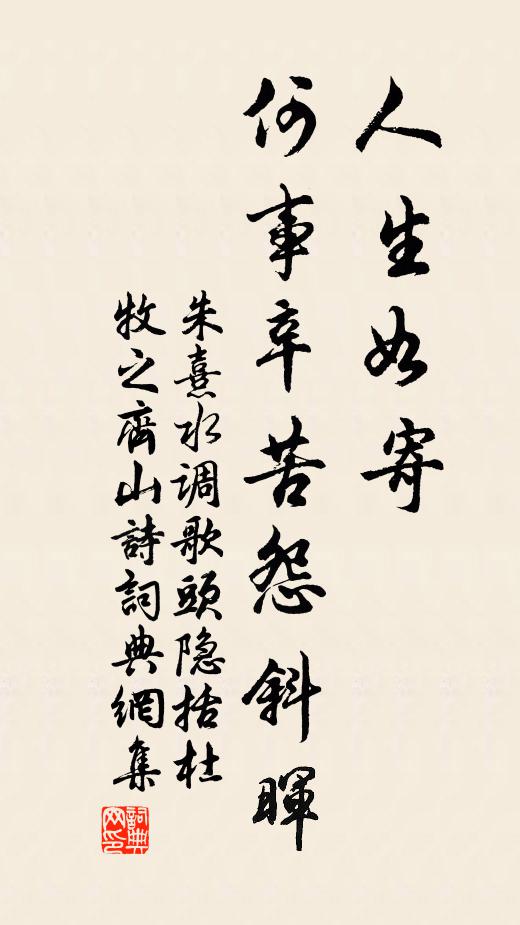 人生如寄
何事辛苦怨斜暉
朱熹水调歌頭隐括杜
牧之齊山詩詞典網集
詞典网印